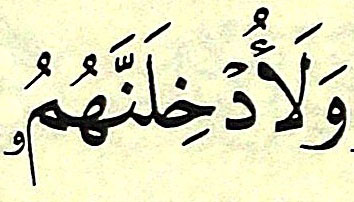 وَلَأُدۡخِلَنَّهُمُۥ